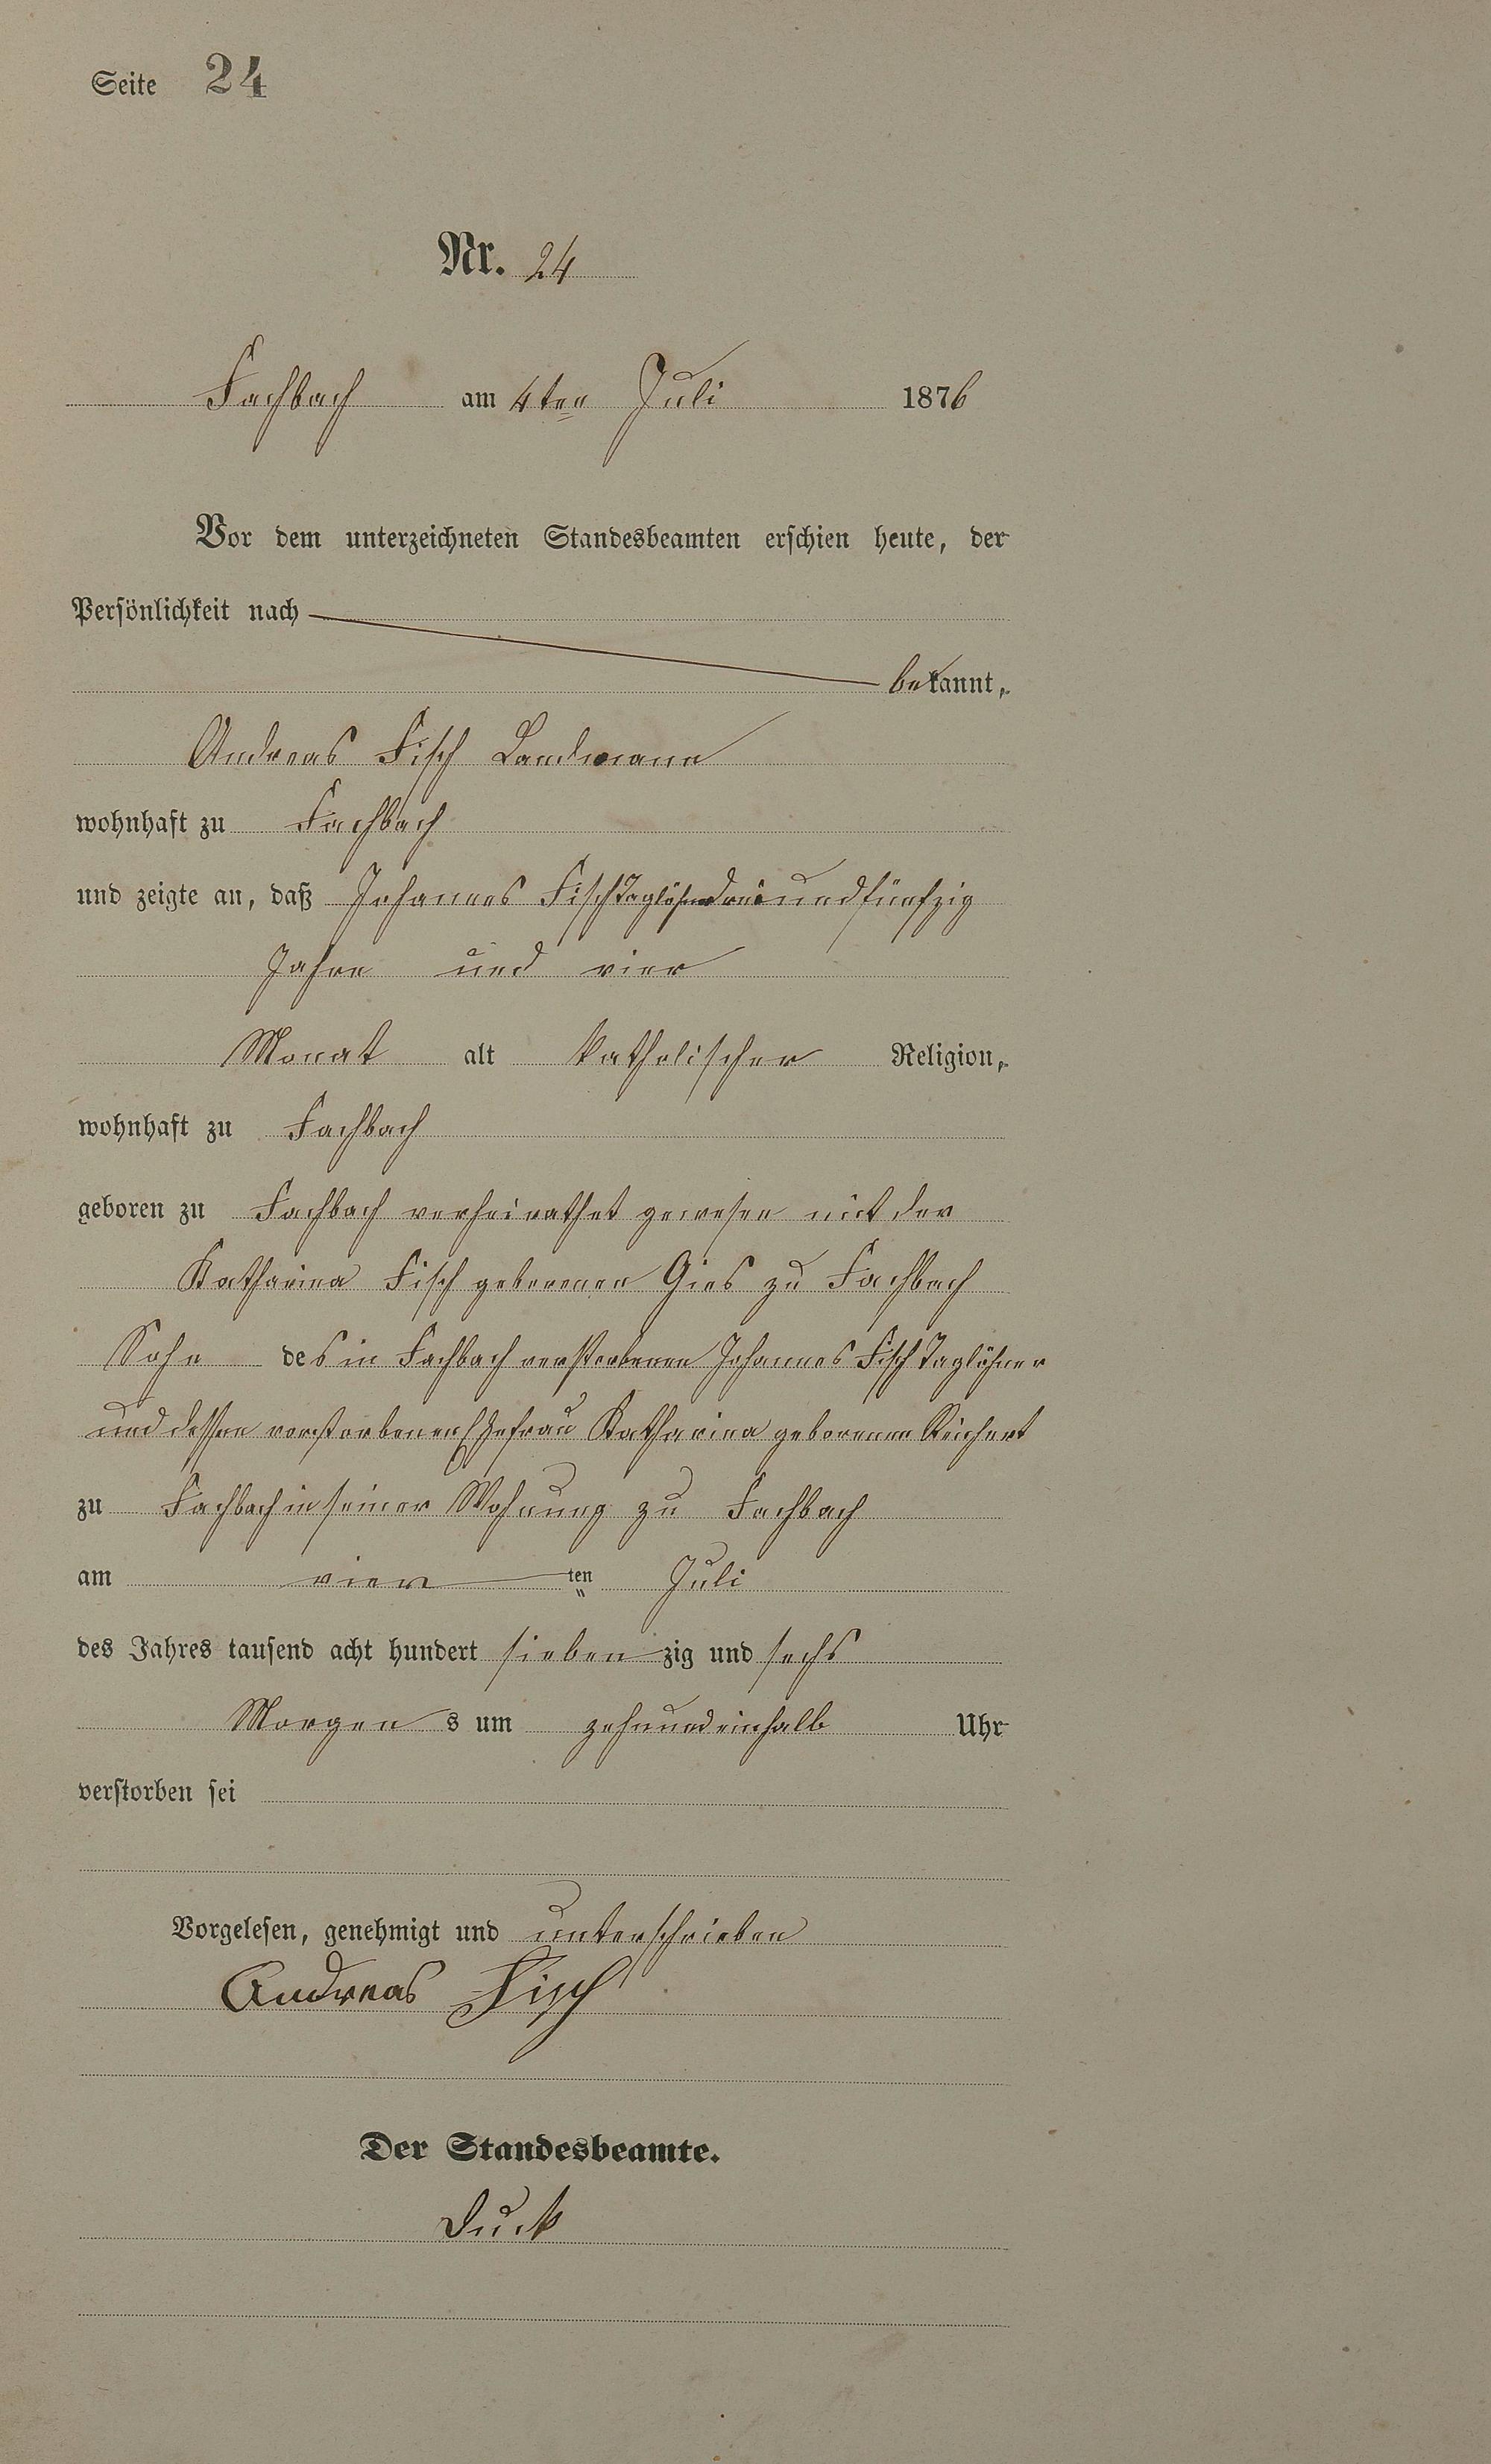 Seite 24
Nr. 24
Fachbach am 4ten Juli 1876
Vor dem unterzeichneten Standesbeamten erschien heute, der
Persönlichkeit nach
bekannt,
Andreas Fisch Landmann
wohnhaft zu Fachbach
und zeigte an, daß Johannes Fisch Taglöhner dreiundfünfzig
Jahre und vier
Monat alt katholischer Religion,
wohnhaft zu Fachbach
geboren zu Fachbach verheirathet gewesen mit der
Katharina Fisch geborenen Gies zu Fachbach
Sohn des in Fachbach verstorbenen Johannes Fisch Taglöhner
und dessen verstorbenen Ehefrau Katharina geborenen Reichert
zu Fachbach in seiner Wohnung zu Fachbach
am vier ten Juli
des Jahres tausend acht hundert sieben zig und sechs
Morgen s um zehnundeinhalb Uhr
verstorben sei
Vorgelesen, genehmigt und unterschrieben
Andreas Fisch
Der Standesbeamte.
Duck